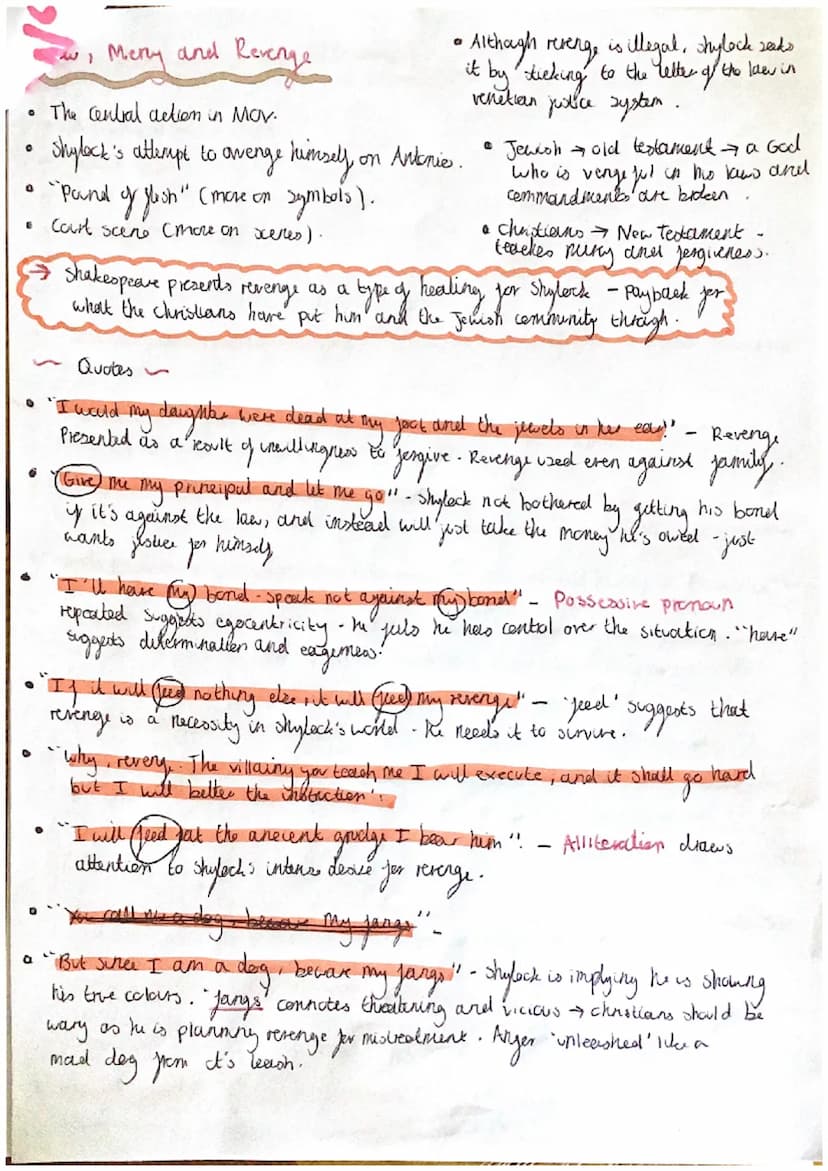 w, Mercy and Revenge
• The central action in MOV.
• Shylock's attempt to avenge himself on Antonio.
• "Pound of flesh" (more on symbols).
• Court scene (more on scenes).
• Although revenge is illegal, shylock seeks
it by sticking to the letter of the law in
venetian justice system.
• Jewish → old testament → a God
who is vengeful in his laws and
commandments are broken.
• Christians → New Testament -
teaches mercy and forgiveness.
→ Shakespeare presents revenge as a type of healing for Shylock - payback for
what the christians have put him and the Jewish community through.
~ Quotes ~
• "I would my daughter were dead at my foot and the jewels in her ear!" - Revenge
Presented as a result of unwillingness to forgive. Revenge used even against family.
• "Give me my principal and let me go" - Shylock not bothered by getting his bond
if it's against the law, and instead will just take the money he's owed - just
wants justice for himself
• "I'll have my bond - speak not against my bond" - Possessive pronoun
repeated suggests egocentricity - he feels he has control over the situation. "have"
suggests determination and eagerness.
• "If it will feed nothing else, it will feed my revenge" - 'feed' suggests that
revenge is a necessity in shylock's world - He needs it to survive.
• "Why, revenge. The villainy you teach me I will execute, and it shall go hard
but I will better the instruction".
• "I will feed fat the ancient grudge I bear him". - Alliteration draws
attention to Shylock's intense desire for revenge.
• "You call me a dog, beware my fangs" -
• "But since I am a dog, beware my fangs" - Shylock is implying he is showing
his true colours. 'fangs' connotes threatening and vicious → christians should be
wary as he is planning revenge for mistreatment. Anger 'unleashed' like a
mad dog from it's leash.